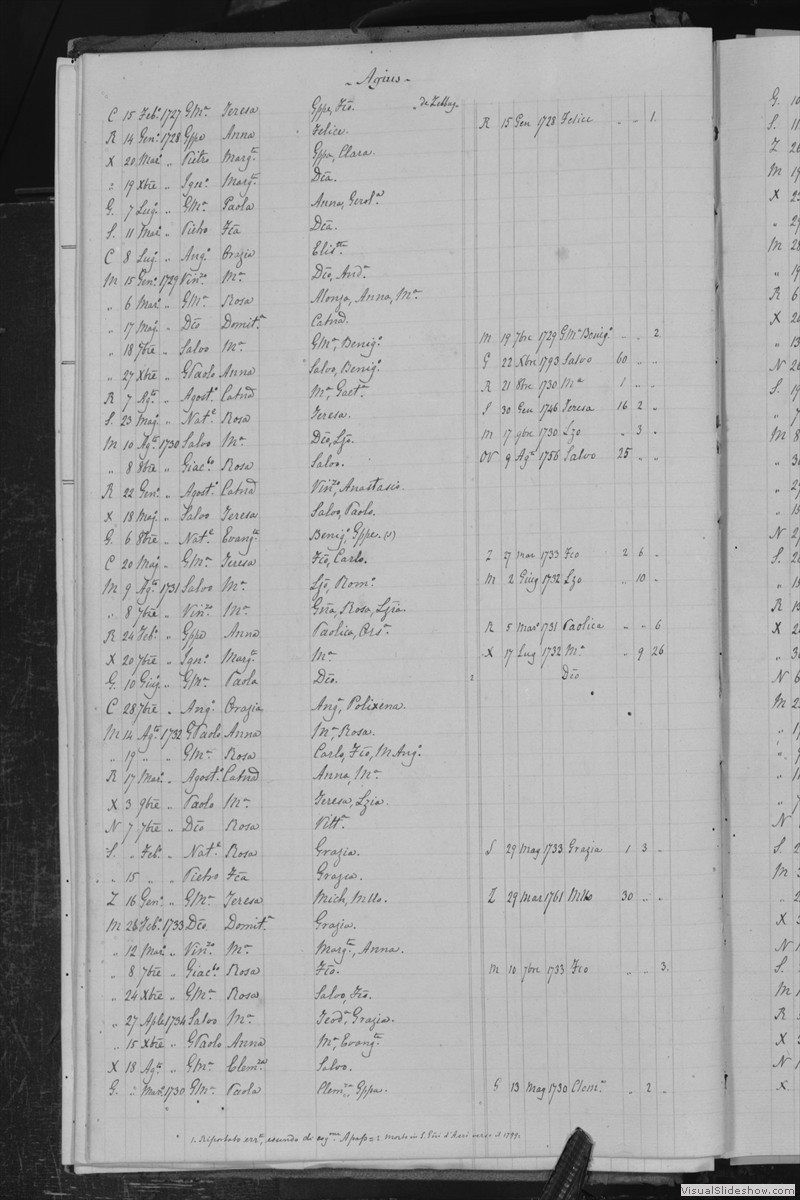 - Agius -
C 15 Feb.o 1727 GMa Teresa Gppe, Fco. Da Zebbug. 
R 14 Gen.o 1728 Gppo Anna Felice. R 15 Gen 1728 Felice " " 1.
X 20 Mar.o " Pietro Marg.ta Gppa, Clara.
" 19 Xbre " Ign.o Marg.ta Dca.
G. 7 Lug. " GMa Paola Anna, Gerol.a
S. 11 Mar.o " Pietro Fca Dca.
C 8 Lug. " Ang.o Grazia Elis.tta
M 15 Gen.o 1729 Vin.zo Ma Dco, And.a
" 6 Mar.o " GMa Rosa Alonza, Anna, Ma
" 17 Mag. " Dco Domit.a Catna.
" 18 7bre " Salvo Ma GMa, Benig.o M 19 7bre 1729 GMa Benig.o " " 2
" 27 Xbre " GPaolo Anna Salvo, Benig.o G 22 Xbre 1793 Salvo 60 " "
R 7 Ag.to " Agost.o Catna Ma, Gaet.a R 21 8bre 1730 Ma 1 " "
S. 23 Mag. " Nat.e Rosa Teresa. S 30 Gen 1746 Teresa 16 2 "
M 10 Ag.to 1730 Salvo Ma Dco, Lzo. M 17 9bre 1730 Lzo " 3 "
" 8 8bre " Giac.bo Rosa Salvo. OV 9 Ag.o 1756 Salvo 25 " "
R 22 Gen.o " Agost.o Catna Vin.zo, Anastasio.
X 18 Mag. " Salvo Teresa Salvo, Paolo.
G. 6 8bre " Nat.e Evang.ta Benig.o, Gppe. (1)
C 20 Mag. " GMa Teresa Fco, Carlo. Z 27 mar 1733 Fco 2 6 "
M 9 Ag.to 1731 Salvo Ma Lzo, Rom.o M 2 Giug 1732 Lzo " 10 "
" 8 7bre " Vin.zo Ma Gna, Rosa, Lzia.
R 24 Feb.o " Gppo Anna Paolica, Ors.a R 5 Mar.o 1731 Paolica " " 6
X 20 7bre " Ign.o Marg.ta Ma X 17 Lug 1732 Ma " 9 26
G. 10 Giug. " GMa Paola Dco. 2 Dco
C 28 7bre " Ang.o Grazia Ang.a, Polixena.
M 14 Ag.to 1732 GPaolo Anna Ma, Rosa.
" 19 " " GMa Rosa Carlo, Fco, M Ang.o
R 17 Mar.o " Agost.o Catna Anna, Ma
X 3 9bre " Paolo Ma Teresa, Lzia.
N 7 7bre " Dco Rosa Vitt.a
S. " Feb.o " Nat.e Rosa Grazia. S 29 Mag 1733 Grazia 1 3 "
" 15 " " Pietro Fca Grazia.
Z 16 Gen.o " GMa Teresa Mich, Mllo. Z 29 mar 1761 Mllo 30 " "
M 26 Feb.o 1733 Dco Domit.a Grazia.
" 12 Mar.o " Vin.zo Ma Marg.ta, Anna.
" 8 7bre " Giac.bo Rosa Fco. M 10 7bre 1733 Fco " " 3.
" 24 Xbre " GMa Rosa Salvo, Fco.
" 27 Aple 1734 Salvo Ma Teod.a, Grazia.
" 15 Xbre " GPaolo Anna Ma, Evang.ta
X 18 Ag.to " GMa Clem.za Salvo.
G. " Mar.o 1730 GMa Paola Clem.za, Gppa. G 13 Mag 1730 Clem.a " 2 "
VisualSlideshow.com